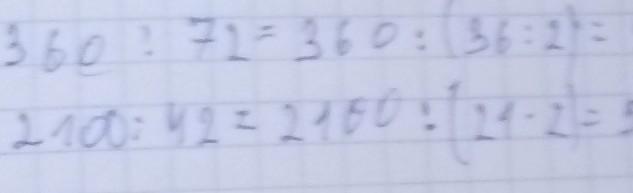 360 : 72 = 360 : (36 : 2) =
2100 : 42 = 2100 : (21 · 2) =